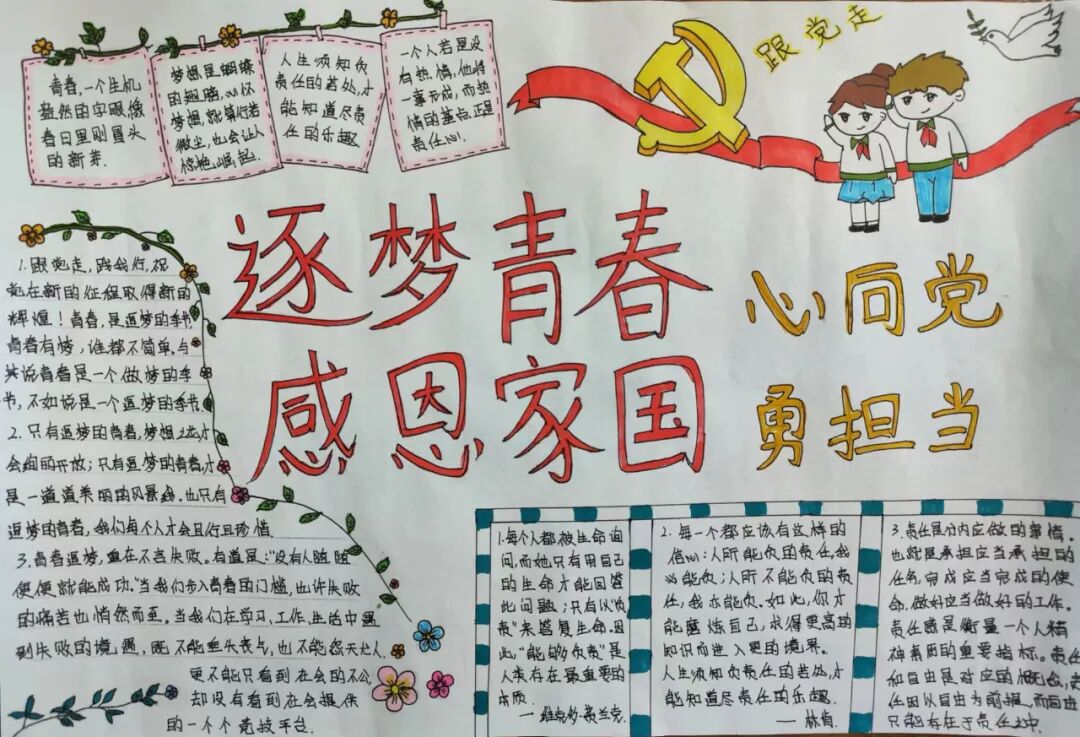 青春,一个生机
盎然的字眼,像
春日里刚冒头
的新芽.
梦想是蝴蝶
的翅膀,心怀
梦想,就算行若
微尘,也会让人
惊艳崛起.
人生须知负
责任的苦处,才
能知道尽责
任的乐趣
一个人若是没
有热情,他将
一事无成,而热
情的基点正是
责任心.
跟党走
逐梦青春
感恩家国
心向党
勇担当
1.跟党走,践我行,祝
党在新的征程取得新的
辉煌!青春,是逐梦的季节
青春有梦,谁都不简单.与
其说青春是一个做梦的季
节,不如说是一个逐梦的季节.
2.只有逐梦的青春,梦想之花才
会绚的开放;只有逐梦的青春,才
是一道道美丽的风景线.也只有
逐梦的青春,我们每个人才会且行且珍惜.
3.青春逐梦,重在不言失败。有道是:"没有人随随
便便就能成功."当我们步入青春的门槛,也许失败
的痛苦也悄然而至。当我们在学习,工作,生活中遇
到失败的境遇,既不能垂头丧气,也不能怨天尤人.
更不能只看到社会的不公
却没有看到社会提供
的一个个竞技平台.
1.每个人都被生命询
问,而她只有用自己
的生命才能回答
此问题;只有以"负
责"来答复生命.因
此,"能够负责"是
人类存在最重要的
本质.
—维克多·费兰克.
2.每一个都应该有这样的
信心:人所能负的责任,我
必能负;人所不能负的责
任,我亦能负.如此,你才
能磨炼自己,求得更高的
知识而进入更的境界。
人生须知负责任的苦处,才
能知道尽责任的乐趣.
—林肯.
3.责任是分内应做的事情.
也就是承担应当承担的
任务,完成应当完成的使
命,做好应当做好的工作.
责任感是衡量一个人精
神素质的重要指标。责任
和自由是对应的概念,责
任因以自由为前提,而自由
只能存在于责任之中.